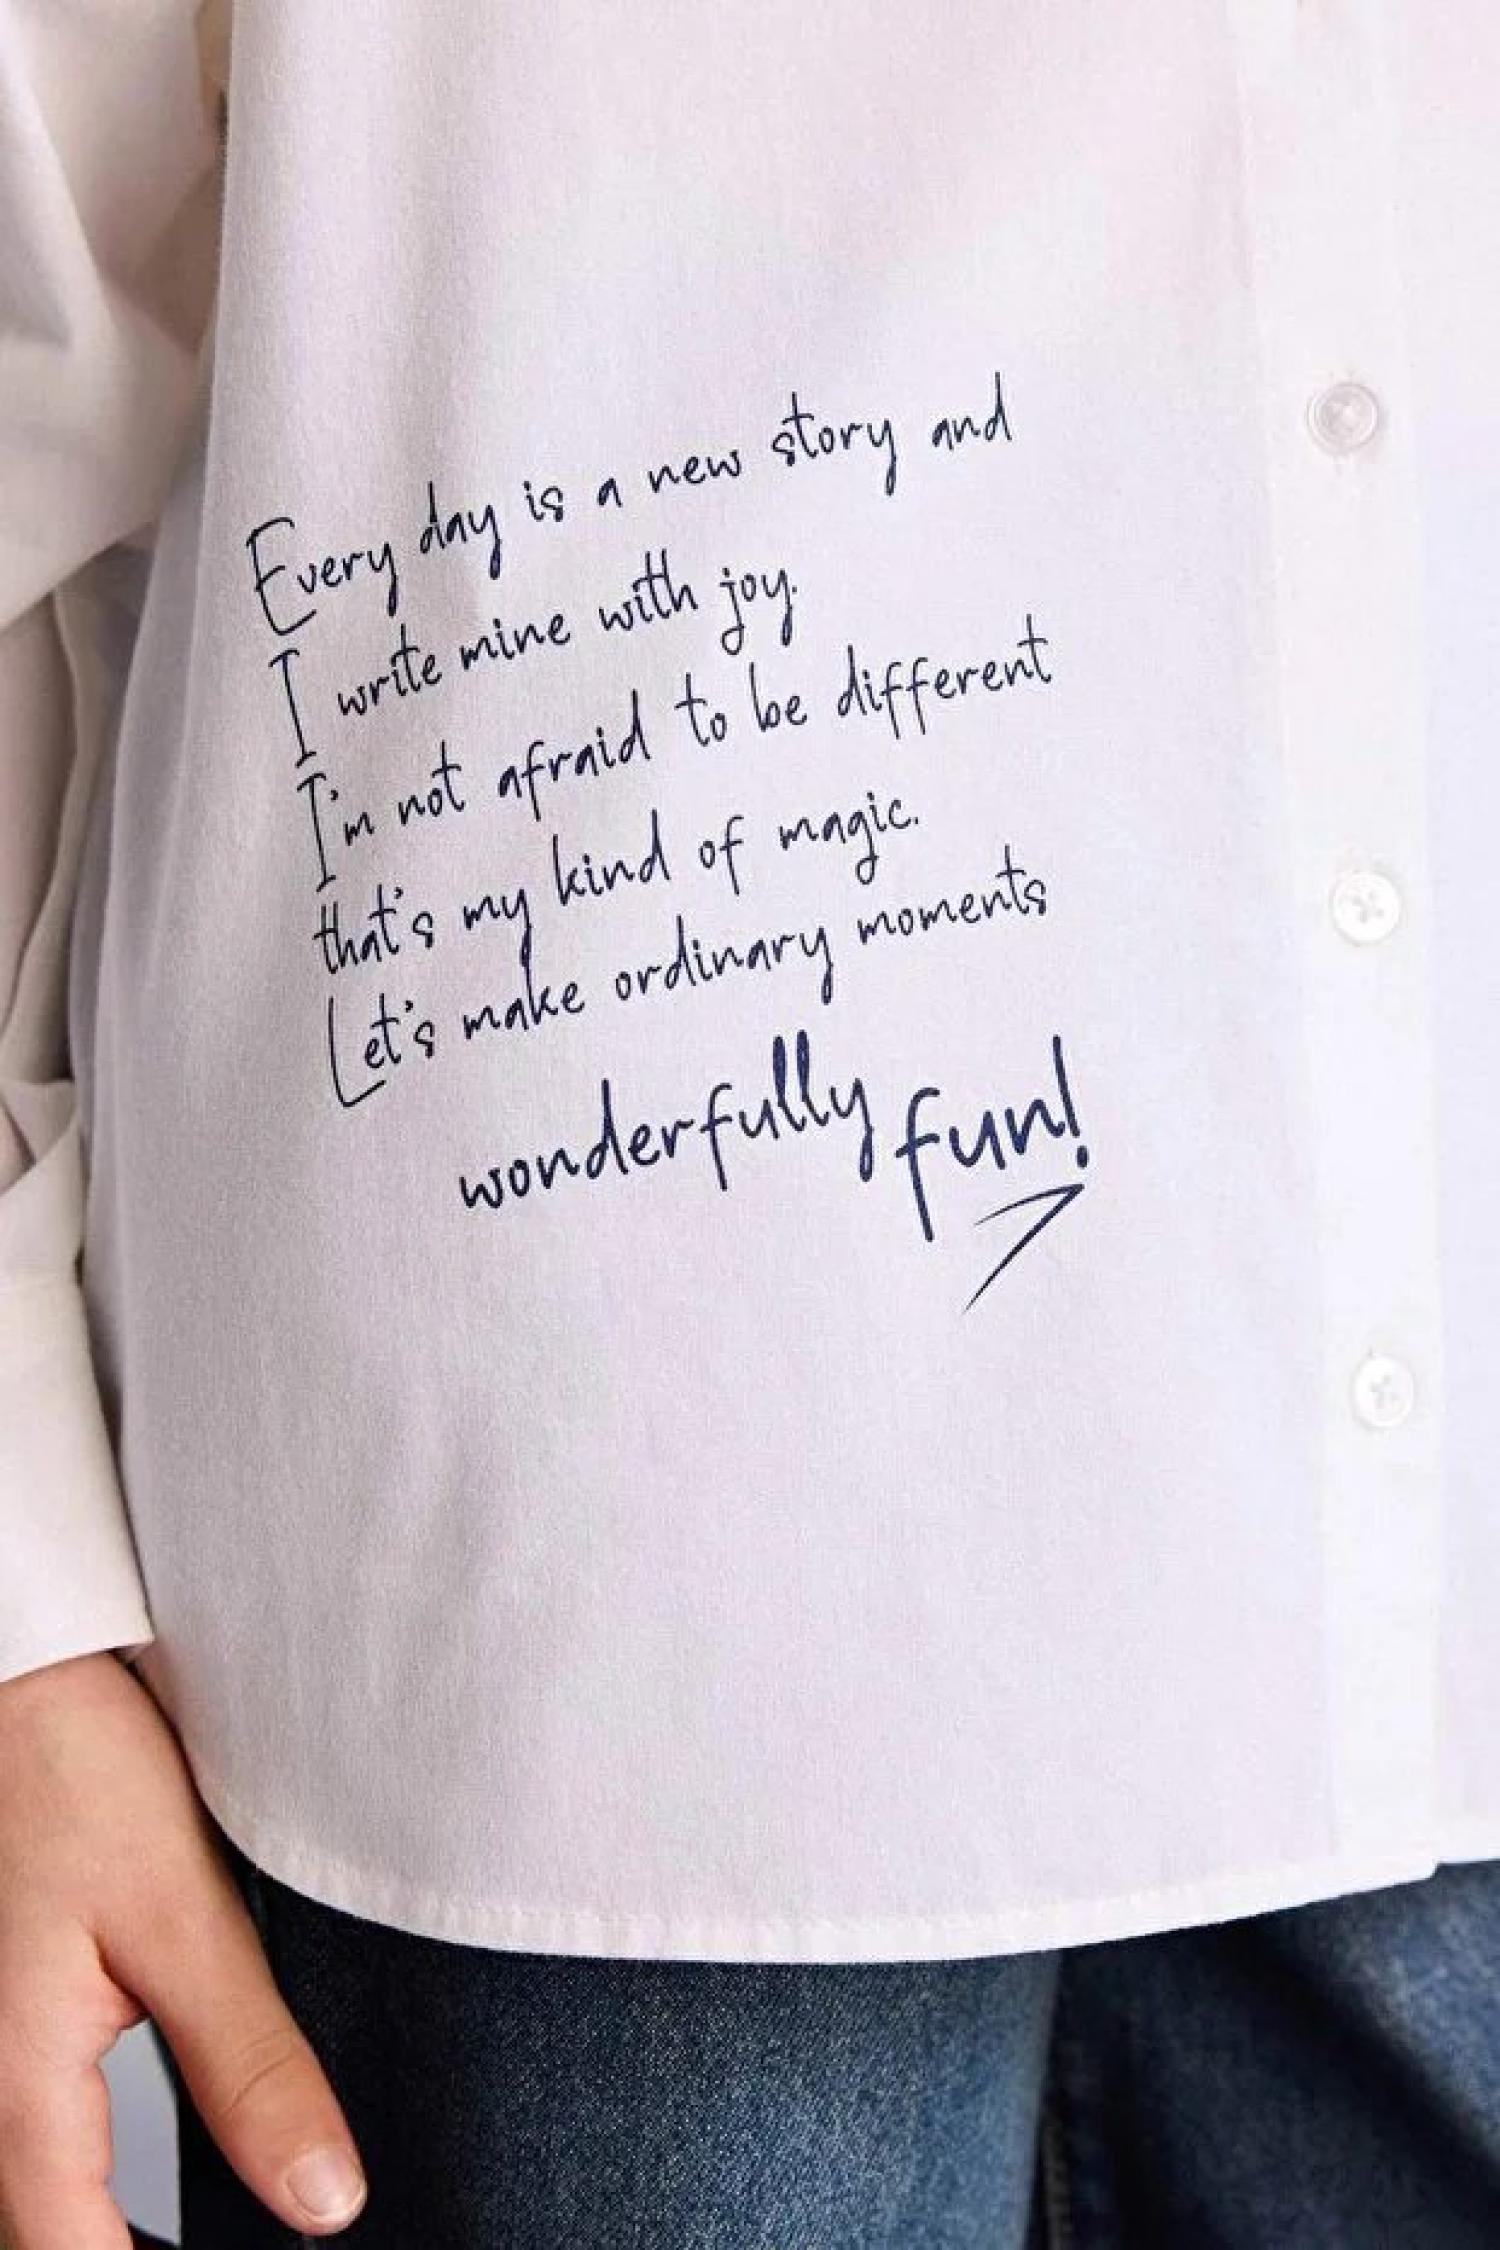 Every day is a new story and
I write mine with joy.
I'm not afraid to be different
that's my kind of magic.
Let's make ordinary moments
wonderfully fun!